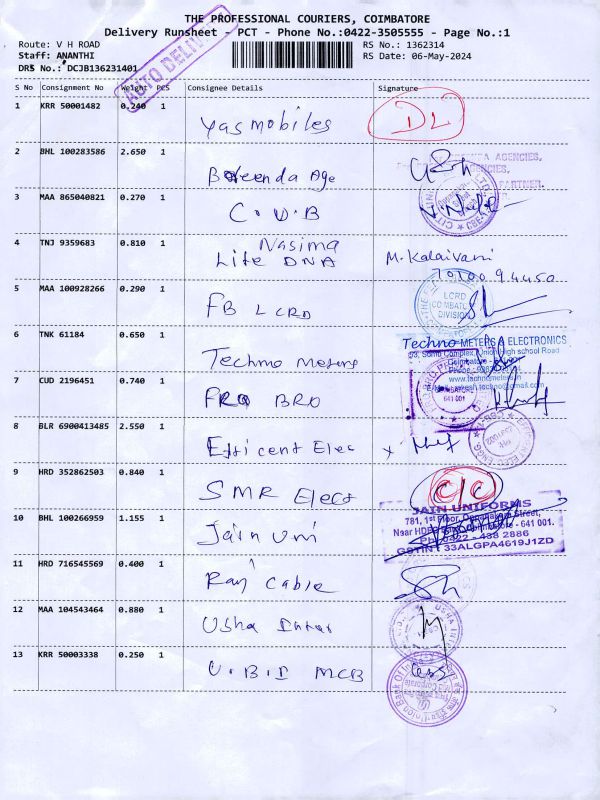 THE PROFESSIONAL COURIERS, COIMBATORE
Delivery Runsheet - PCT - Phone No.:0422-3505555 - Page No.:1
Route: V H ROAD
RS No.: 1362314
Staff: ANANTHI
RS Date: 06-May-2024
DRS No.: DCJB136231401
AUTO DELIVERY
S No Consignment No Weight PCS Consignee Details Signature
1 KRR 50001482 0.240 1
Yasmobiles DL
2 BHL 100283586 2.650 1
AGENCIES,
AGENCIES,
PARTNER.
3 MAA 865040821 0.270 1
C.U.B
4 TNJ 9359683 0.810 1
Nasima
Life DNA M. Kalaivani
5 MAA 100928266 0.290 1
LCRD
COIMBATORE
DIVISION
FB LCRD
6 TNK 61184 0.650 1
Techno METERS & ELECTRONICS
53, Somu Complex, Union High school Road
Coimbatore
www.technometers.in
Techno Meters
7 CUD 2196451 0.740 1
641 001
PRO BRO
8 BLR 6900413485 2.550 1
Efficent Elec
9 HRD 352862503 0.840 1
SMR Elect C/C
10 BHL 100266959 1.155 1
JAIN UNIFORMS
781, 1st Floor, Oppanakara Street,
Near HDFC Bank, Coimbatore - 641 001.
Ph: 0422 - 438 2886
GSTIN : 33ALGPA4619J1ZD
Jain Uni
11 HRD 716545569 0.400 1
Raj Cable
12 MAA 104543464 0.880 1
Usha Inter
13 KRR 50003338 0.250 1
U.B.I MCB